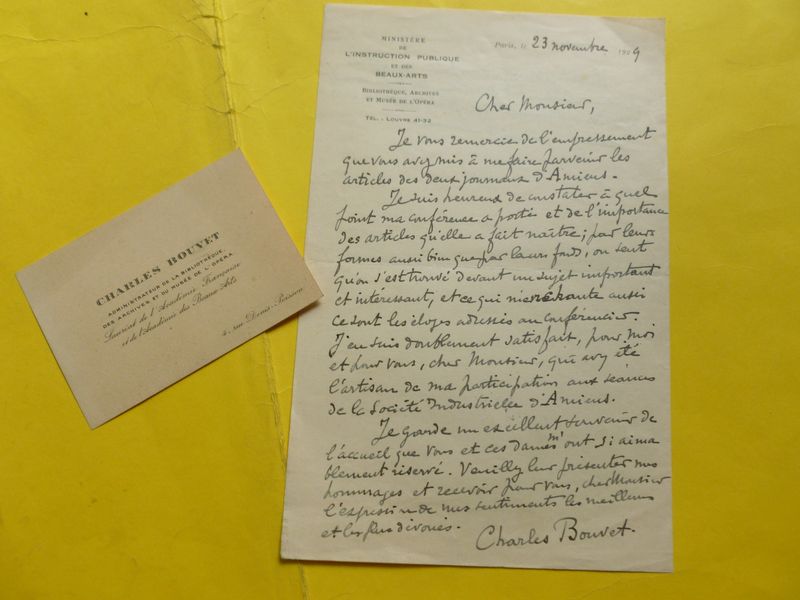 MINISTÈRE
DE
L'INSTRUCTION PUBLIQUE
ET DES
BEAUX-ARTS
BIBLIOTHÈQUE, ARCHIVES
ET MUSÉE DE L'OPÉRA
TÉL. - LOUVRE 41-32
Paris, le 23 novembre 1929
Cher Monsieur,
Je vous remercie de l'empressement
que vous avez mis à me faire parvenir les
articles des deux journaux d'Amiens.
Je suis heureux de constater à quel
point ma conférence a porté et de l'importance
des articles qu'elle a fait naître; par leurs
formes aussi bien que par leurs fonds, on sent
qu'on s'est trouvé devant un sujet important
et intéressant, et ce qui m'enchante aussi
ce sont les éloges adressés au conférencier.
J'en suis doublement satisfait, pour moi
et pour vous, cher Monsieur, qui avez été
l'artisan de ma participation aux séances
de la Société Industrielle d'Amiens.
Je garde un excellent souvenir de
l'accueil que vous et ces dames m'ont si aima
blement réservé. Veuillez leur présenter mes
hommages et recevoir pour vous, cher Monsieur
l'expression de mes sentiments les meilleurs
et les plus dévoués.
Charles Bouvet.
CHARLES BOUVET
ADMINISTRATEUR DE LA BIBLIOTHÈQUE,
DES ARCHIVES ET DU MUSÉE DE L'OPÉRA
Lauréat de l'Académie Française
et de l'Académie des Beaux-Arts
4, rue Denis-Poisson